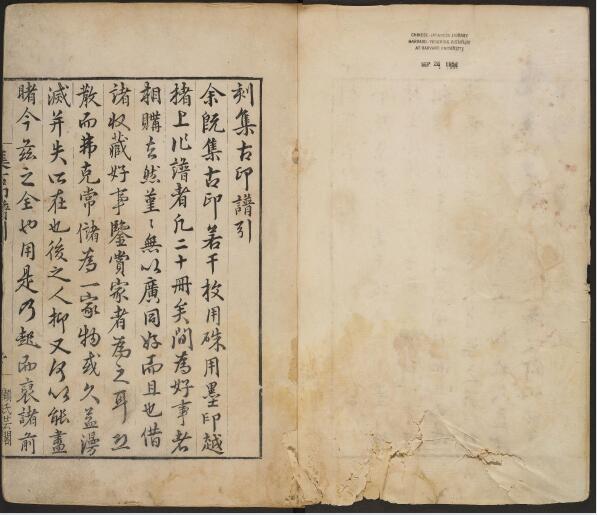 CHINESE-JAPANESE LIBRARY
HARVARD-YENCHING INSTITUTE
AT HARVARD UNIVERSITY
SEP 24
刻集古印譜引
余既集古印若干枚用硃用墨印越
楮上作譜者凡二十冊矣間為好事者
相購去然堇〻無以廣同好而且也借
諸收藏好事鑒賞家者為之耳
散而弗克常儲為一家物或久益漫
滅并失所在也後之人抑又何以能盡
睹今茲之全也用是乃趣而裒諸前
集古印譜引
顧氏芸閣